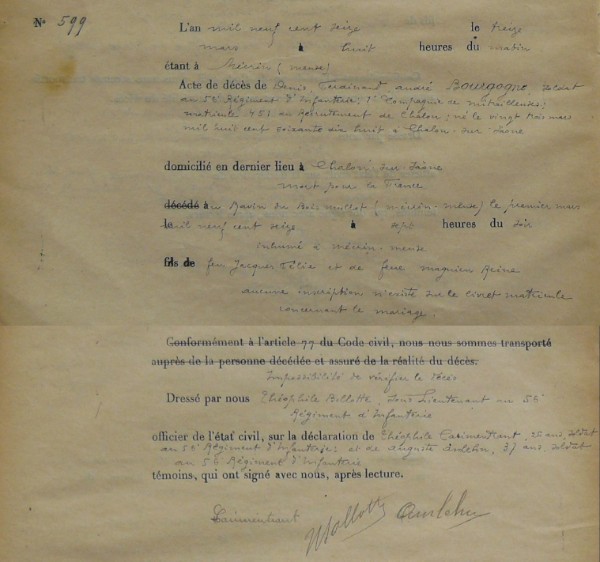 N° 599
L'an mil neuf cent seize le treize
mars à huit heures du matin
étant à Mécrin (meuse)
Acte de décès de Denis Ferdinand andré Bourgogne, soldat
au 56e Régiment d'Infanterie; 1e Compagnie de mitrailleuses;
matricule 451 au Recrutement de Châlon; né le vingt trois mars
mil huit cent soixante dix huit à Chalon-sur-Saône
domicilié en dernier lieu à Chalon-sur-Saône
mort pour la France
décédé au (mécrin-meuse) le premier mars
le mil neuf cent seize à sept heures du soir
inhumé à mécrin-meuse
fils de feu Jacques Félix et de feue magnien Reine
aucune inscription n'existe sur le livret matricule
concernant le mariage.
Conformément à l'article 77 du Code civil, nous nous sommes transporté
auprès de la personne décédée et assuré de la réalité du décès.
Impossibilité de vérifier le décès
Dressé par nous Théophile Billotte, Sous Lieutenant au 56e
Régiment d'Infanterie
officier de l'état civil, sur la déclaration de Théophile 20 ans soldat
au 56e Régiment d'Infanterie; et de Auguste 37 ans soldat
au 56 Régiment d'Infanterie
témoins, qui ont signé avec nous, après lecture.